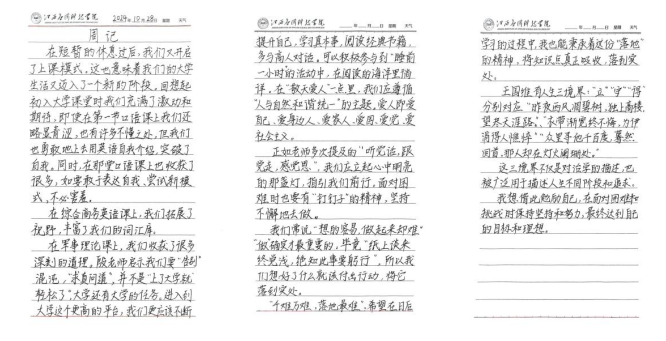 2024年10月28日 星期 天气
周记
在短暂的休息过后,我们又开启
了上课模式。这也意味着我们的大学
生活又迈入了一个新的阶段。回想起
初入大学课堂时我们充满了激动和
期待,即使在第一节口语课上我们还
略显青涩,也有许多不懂之处,但我们
也勇敢地上去用英语自我介绍,突破了
自我。同时,在那堂口语课上也收获了
很多,如要敢于表达自我、尝试新模
式,不必害羞。
在综合商务英语课上,我们拓展了
视野,丰富了我们的词汇库。
在军事理论课上,我们收获了很多
深刻的道理。殷老师启示我们要“告别
混沌,求真问道”,并不是“上了大学就
轻松了”大学还有大学的任务,进入到
大学这个更高的平台,我们更应该不断
年 月 日 星期 天气
提升自己,学习真本事,阅读经典书籍,
多与高人对话。可以积极参与到“睡前
一小时的活动中,在阅读的海洋里徜
徉,在“敬天爱人”一点里,我们应遵循
“人与自然和谐统一”的主题,爱人即爱
自己,爱身边人、爱家人、爱国、爱党、爱
社会主义。
正如老师多次提及的“听党话,跟
党走,感党恩”,我们应立起心中明亮
的那盏灯,指引我们前行,面对困
难时也要有“钉钉子”的精神,坚持
不懈地去做。
我们常说“想的容易,做起来却难”
“做确实才最重要的,毕竟“纸上谈来
终觉浅,绝知此事要躬行”。所以我
们想好了什么就该付出行动,将它
落到实处。
“千难万难,落地最难”,希望在日后
年 月 日 星期 天气
学习的过程中,我也能秉承着这份“落地”
的精神,将知识尽真吸收,落到实
处。
王国维有人生三境界:“立”“守”“得”
分别对应“昨夜西风凋碧树,独上高楼,
望尽天涯路”、“衣带渐宽终不悔,为伊
消得人憔悴”“众里寻他千百度,蓦然
回首,那人却在灯火阑珊处。
这三境界不仅是对治学的描述,也
被广泛用于描述人生不同阶段和追求。
我想借此勉励自己,在面对困难和
挑战时保持坚持和努力,最终达到自己
的目标和理想。